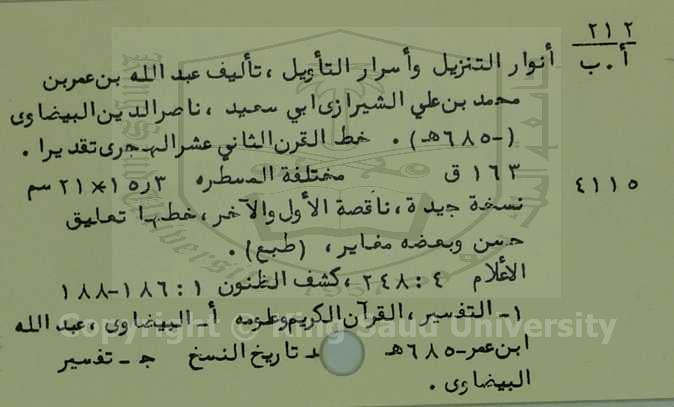 ٢١٢
أ.ب
أنوار التنزيل وأسرار التأويل ، تأليف عبد الله بن عمر بن
محمد بن علي الشيرازى ابي سعيد ، ناصر الدين البيضاوى
(-٦٨٥هـ) . خط القرن الثاني عشر الهجرى تقديرا .
٤١١٥
١٦٣ ق مختلفة المسطره ٣ر١٥×٢١ سم
نسخة جيدة ، ناقصة الأول والآخر ، خطها تعليق
حسن وبعضه مغاير ، (طبع) .
الأعلام ٤ : ٢٤٨ ، كشف الظنون ١ : ١٨٦-١٨٨
١- التفسير ، القرآن الكريم وعلومه أ- البيضاوى ، عبد الله
ابن عمر -٦٨٥هـ تاريخ النسخ جـ- تفسير
البيضاوى .
Copyright © King Saud University